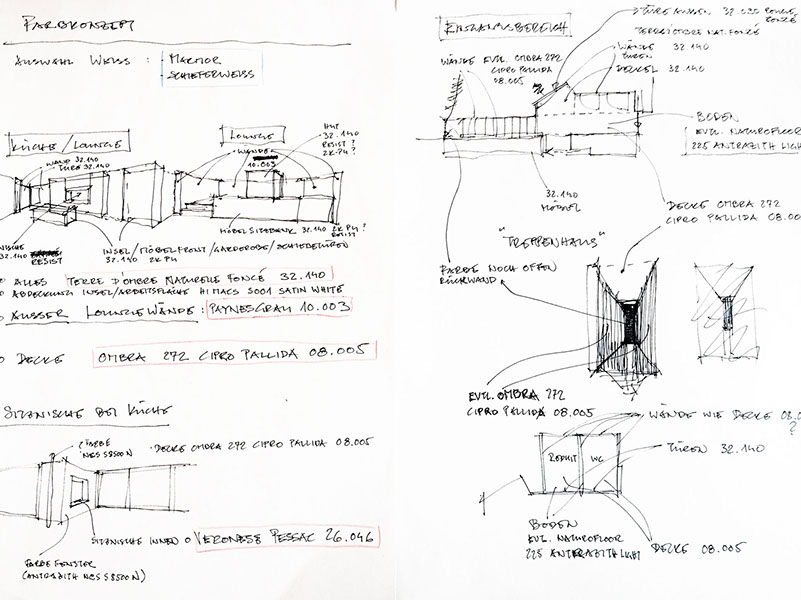 FARBKONZEPT
AUSWAHL WEISS : - MARMOR
- SCHIEFERWEISS
KÜCHE / LOUNGE
LOUNGE
WAND 32.140
TÜRE 32.140
WÄNDE
10.003
HUT
32.140
RESIST ?
2K PU ?
NISCHE
32.140
RESIST
INSEL/MÖBELFRONT/GARDEROBE/SCHIEBETÜREN
32.140 2K PU
MÖBEL SITZBANK 32.140 2K PU ?
RESIST
O ALLES TERRE D'OMBRE NATURELLE FONCÉ 32.140
O ABDECKUNG INSEL/ARBEITSFLÄCHE HI MACS S001 SATIN WHITE
O AUSSER LOUNGEWÄNDE : PAYNESGRAU 10.003
O DECKE OMBRA 272 CIPRO PALLIDA 08.005
SITZNISCHE BEI KÜCHE
? FARBE
NCS S8500N
- DECKE OMBRA 272 CIPRO PALLIDA 08.005
SITZNISCHE INNEN O VERONESE PESSAC 26.046
FARBE FENSTER
(ANTRAZITH NCS S8500N)
EINGANGSBEREICH
TÜRE AUSSEN 32.020
TERRE D'OMBRE NAT. FONCÉ
WÄNDE EVTL. OMBRA 272
CIPRO PALLIDA
08.005
WÄNDE 32.140
TÜREN
DECKEL 32.140
BODEN
EVTL. NATUROFLOOR
225 ANTRAZITH LIGH
32.140
MÖBEL
DECKE OMBRA 272
CIPRO PALLIDA 08.00
"TREPPENHAUS"
FARBE NOCH OFFEN
RÜCKWAND
EVTL. OMBRA 272
CIPRO PALLIDA 08.005
WÄNDE WIE DECKE 08.0
?
REDUIT
WC
TÜREN 32.140
BODEN
EVTL. NATUROFLOOR
225 ANTRAZITH LIGHT
DECKE 08.005